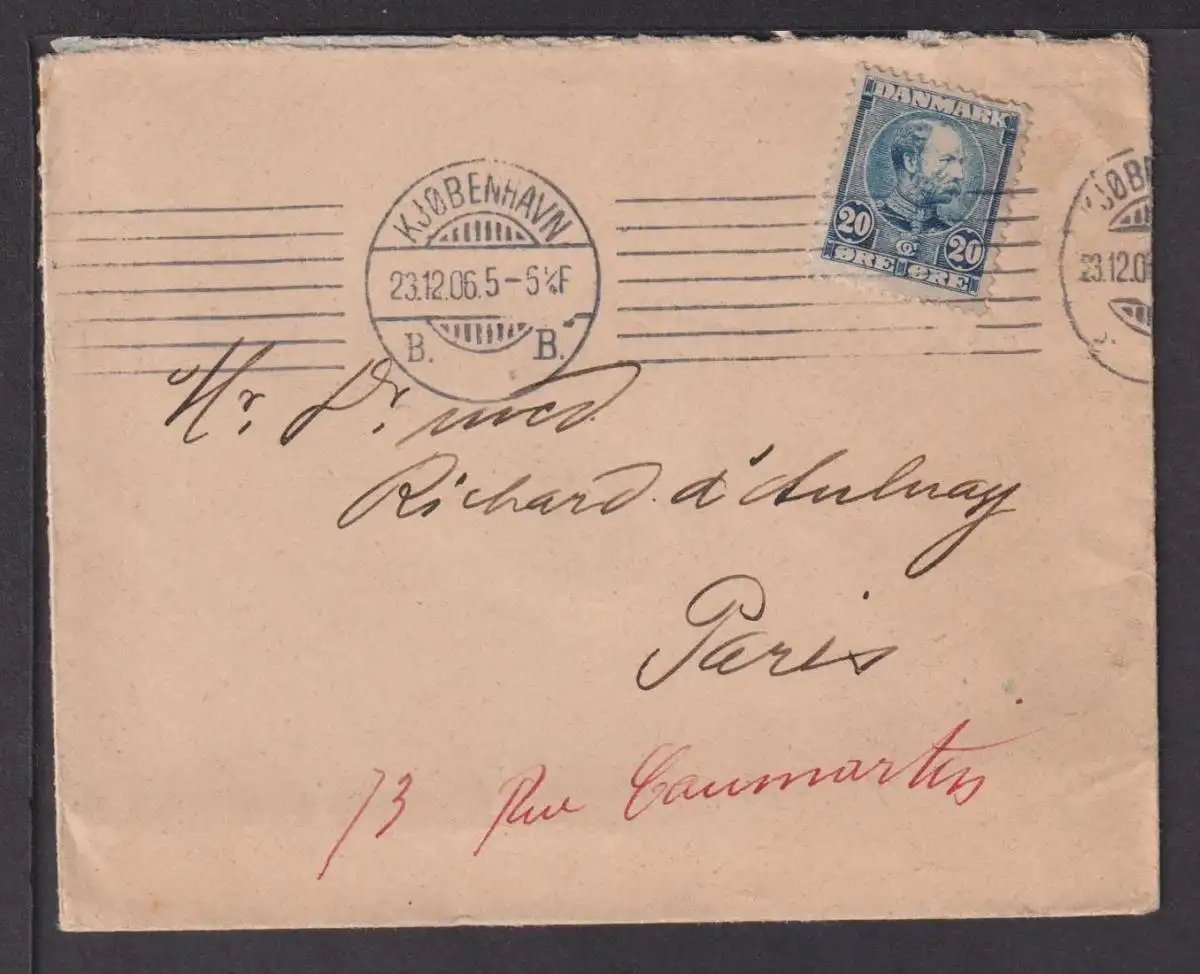 DANMARK
20 20
ØRE ØRE
KJØBENHAVN
23.12.06. 5-6¼F
B. B.
KJØBE
23.12.0
Hr. Dr. med.
Richard d'Aulnay
Paris
73 Rue Caumartin